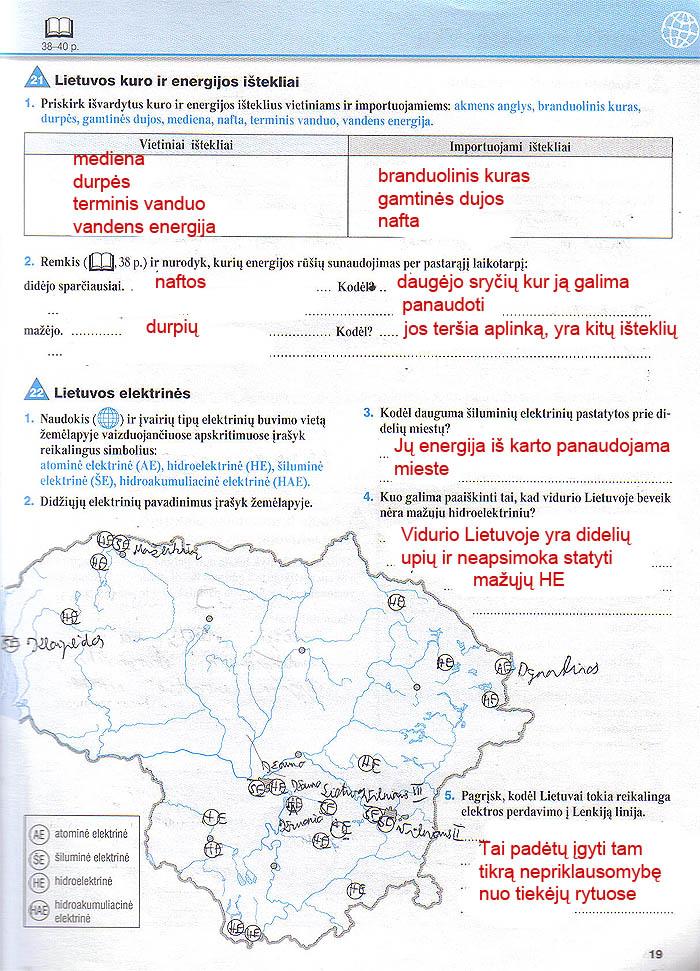 38–40 p.
21 Lietuvos kuro ir energijos ištekliai
1. Priskirk išvardytus kuro ir energijos išteklius vietiniams ir importuojamiems: akmens anglys, branduolinis kuras,
durpės, gamtinės dujos, mediena, nafta, terminis vanduo, vandens energija.
Vietiniai ištekliai
Importuojami ištekliai
mediena
durpės
terminis vanduo
vandens energija
branduolinis kuras
gamtinės dujos
nafta
2. Remkis ( , 38 p.) ir nurodyk, kurių energijos rūšių sunaudojimas per pastarąjį laikotarpį:
didėjo sparčiausiai. . naftos .... Kodėl? .. daugėjo sryčių kur ją galima
... panaudoti
mažėjo. ............. durpių ............ Kodėl? ..... jos teršia aplinką, yra kitų išteklių
....
22 Lietuvos elektrinės
1. Naudokis ( ) ir įvairių tipų elektrinių buvimo vietą
žemėlapyje vaizduojančiuose apskritimuose įrašyk
reikalingus simbolius:
atominė elektrinė (AE), hidroelektrinė (HE), šiluminė
elektrinė (ŠE), hidroakumuliacinė elektrinė (HAE).
2. Didžiųjų elektrinių pavadinimus įrašyk žemėlapyje.
3. Kodėl dauguma šiluminių elektrinių pastatytos prie di-
delių miestų?
Jų energija iš karto panaudojama
mieste
4. Kuo galima paaiškinti tai, kad vidurio Lietuvoje beveik
nėra mažųjų hidroelektrinių?
Vidurio Lietuvoje yra didelių
upių ir neapsimoka statyti
mažųjų HE
HE ŠE Mažeikių
HE
HE
HE
ŠE Klaipėdos
HE
AE Ignalinos
HE
HE
Kauno
ŠE HE Kauno Lietuvos Vilniaus III
ŠE
HE
ŠE Vilniaus II
HE
HE
HE
HE
HE HE
5. Pagrįsk, kodėl Lietuvai tokia reikalinga
elektros perdavimo į Lenkiją linija.
Tai padėtų įgyti tam
tikrą nepriklausomybę
nuo tiekėjų rytuose
AE atominė elektrinė
ŠE šiluminė elektrinė
HE hidroelektrinė
HAE hidroakumuliacinė
elektrinė
19